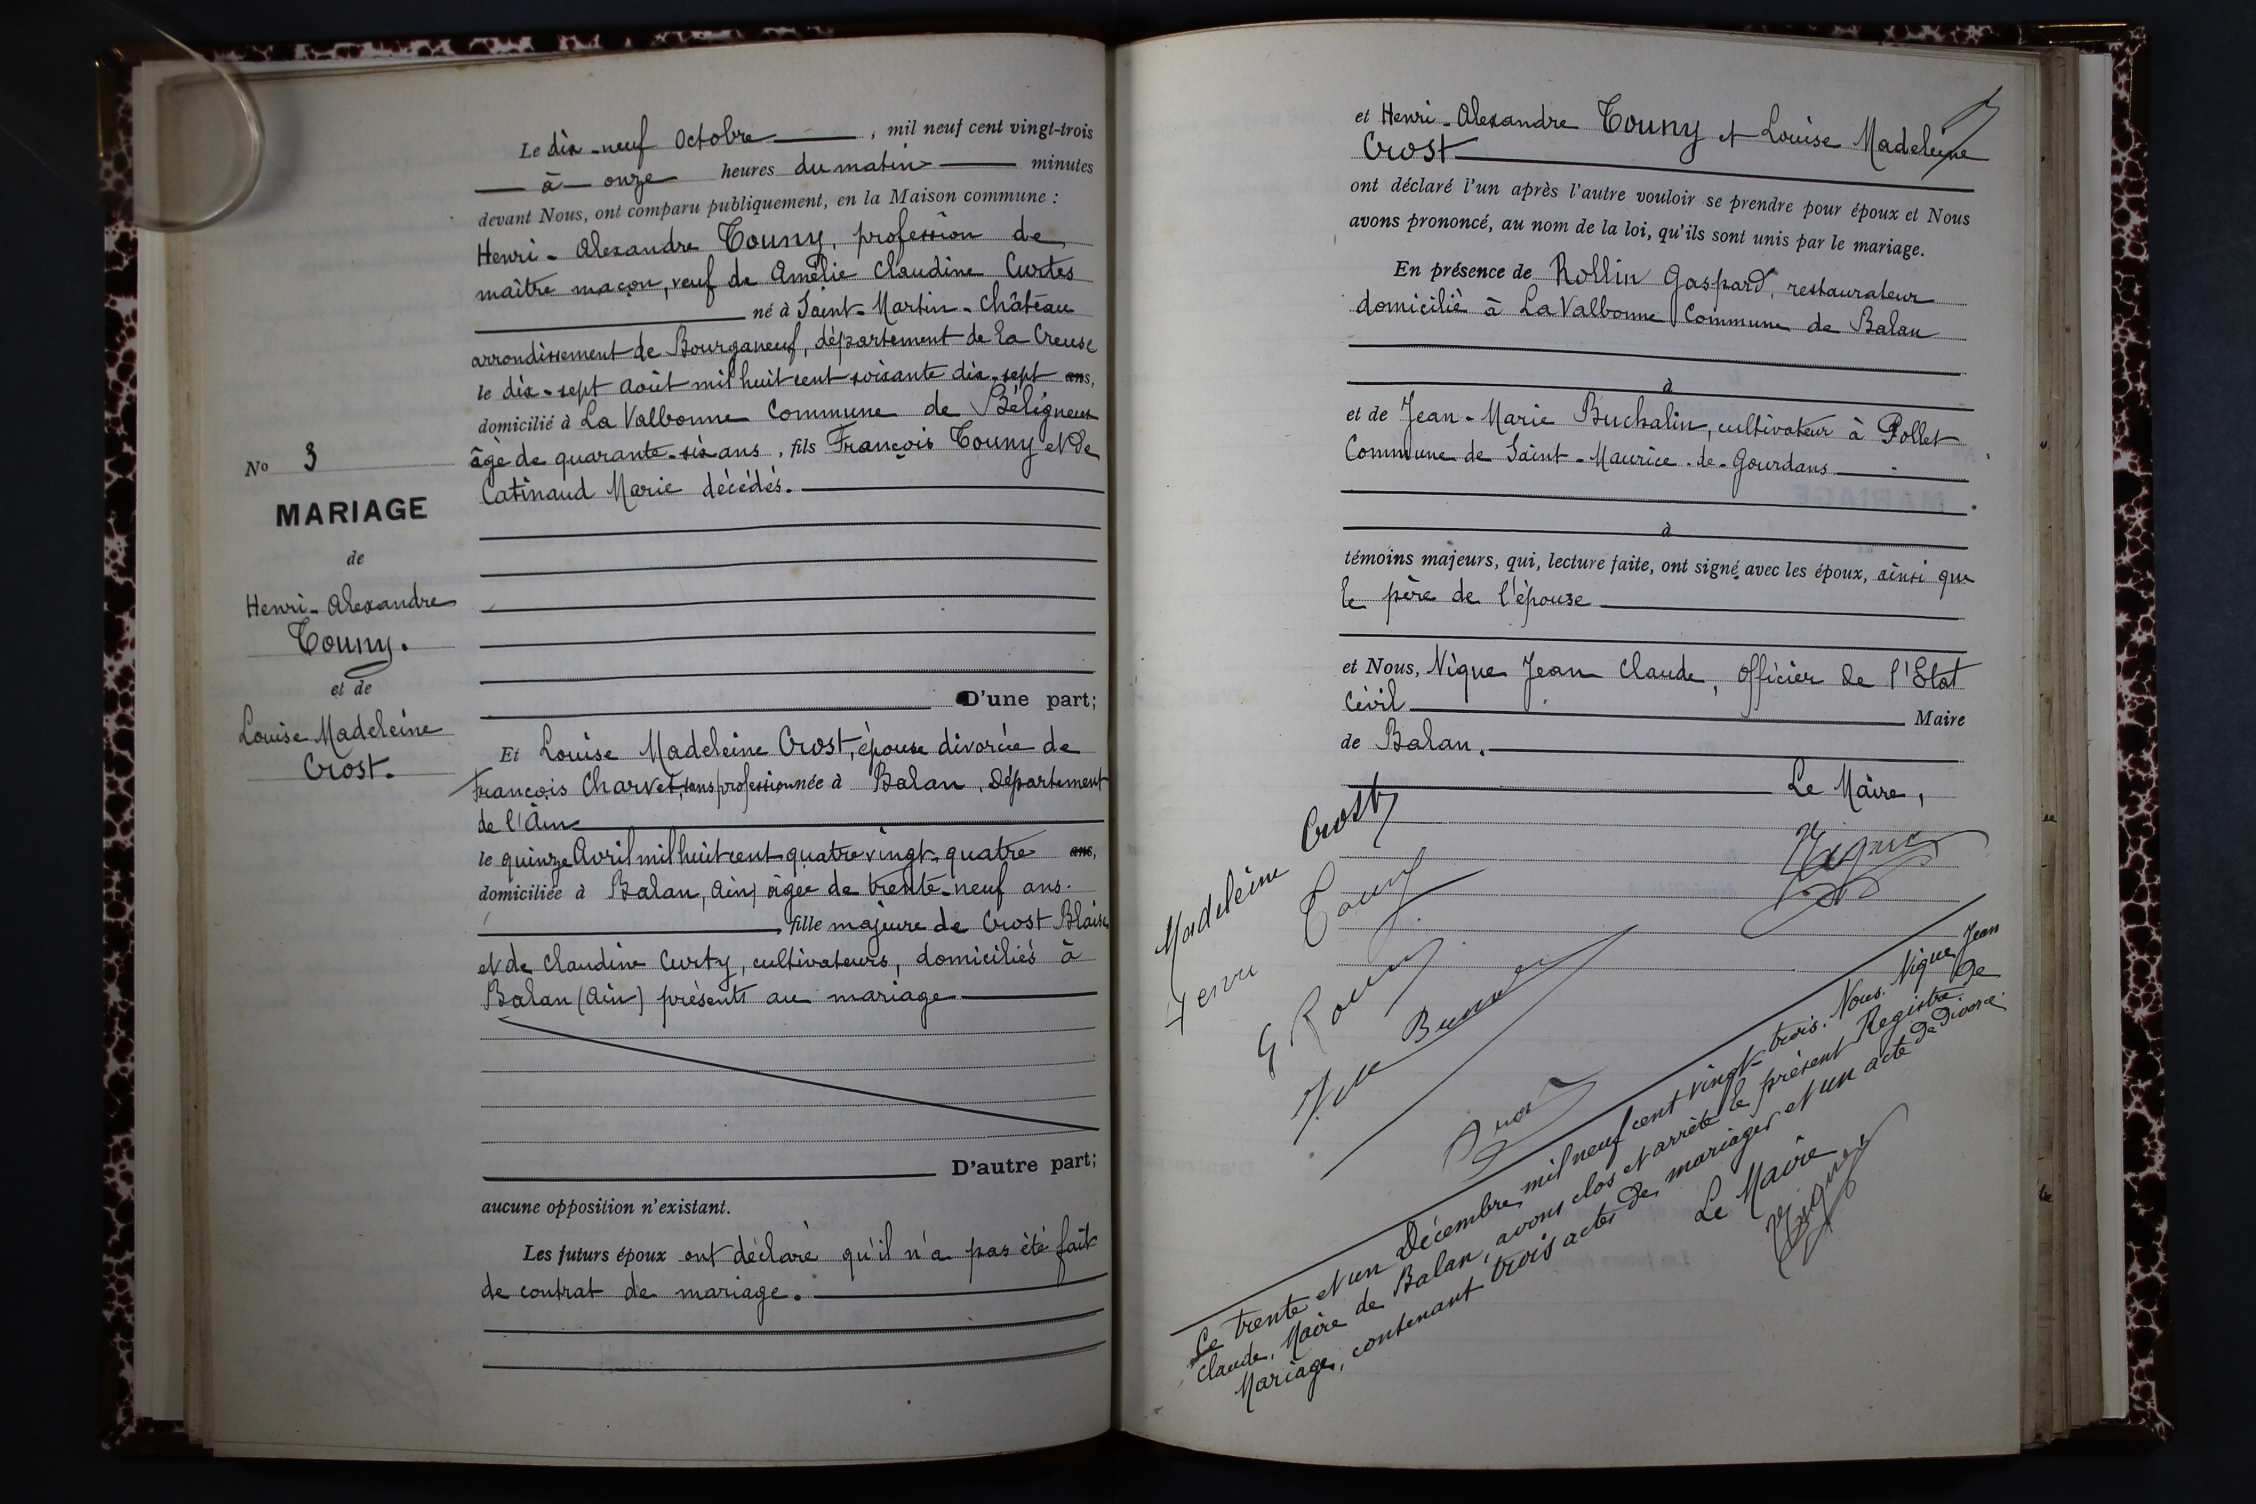 N° 3
MARIAGE
de
Henri-Alexandre
Touny.
et de
Louise Madeleine
Crost.
Le dix-neuf Octobre, mil neuf cent vingt-trois
à onze heures du matin minutes
devant Nous, ont comparu publiquement, en la Maison commune :
Henri-Alexandre Touny, profession de
maître maçon, veuf de Amélie Claudine Curtes
né à Saint-Martin-Château
arrondissement de Bourganeuf, département de la Creuse
le dix-sept août mil huit cent soixante dix-sept ans,
domicilié à La Valbonne Commune de Béligneux
âgé de quarante-six ans, fils François Touny et de
Catinaud Marie décédés.
D'une part;
Et Louise Madeleine Crost, épouse divorcée de
François Charvet, sans profession née à Balan, département
de l'Ain
le quinze Avril mil huit cent quatre vingt-quatre ans,
domiciliée à Balan, (Ain) âgée de trente-neuf ans.
, fille majeure de Crost Blaise
et de Claudine Curty, cultivateurs, domiciliés à
Balan (Ain) présents au mariage
D'autre part;
aucune opposition n'existant.
Les futurs époux ont déclaré qu'il n'a pas été fait
de contrat de mariage.
et Henri-Alexandre Touny et Louise Madeleine
Crost
ont déclaré l'un après l'autre vouloir se prendre pour époux et Nous
avons prononcé, au nom de la loi, qu'ils sont unis par le mariage.
En présence de Rollin Gaspard, restaurateur
domicilié à La Valbonne Commune de Balan
à
et de Jean-Marie Buchalin, cultivateur à Pollet
Commune de Saint-Maurice-de-Gourdans
à
témoins majeurs, qui, lecture faite, ont signé avec les époux, ainsi que
le père de l'épouse
et Nous, Nique Jean Claude, Officier de l'Etat
Civil Maire
de Balan.
Le Maire,
Nique
Madeleine Crost
Henri Touny
Le trente et un Décembre mil neuf cent vingt-trois. Nous. Nique Jean
Claude, Maire de Balan, avons clos et arrêté le présent Registre de
Mariage, contenant trois actes de mariages et un acte de divorce.
Le Maire
Nique